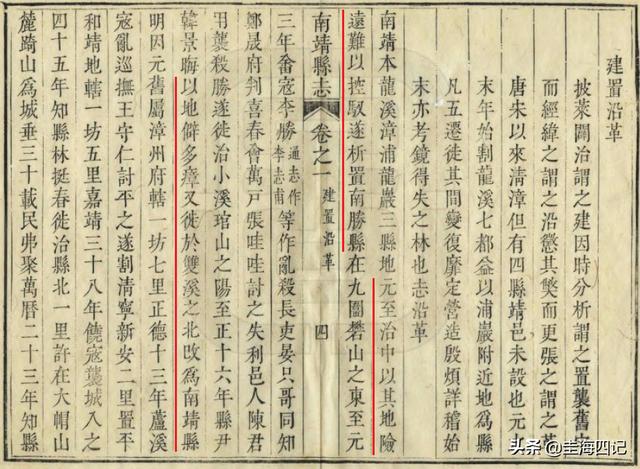 建置沿革
披萊闢治謂之建因時分析謂之置襲舊
而經緯之謂之沿懲其獘而更張之謂之革
唐末以來清漳但有四縣靖邑未設也元
末年始割龍溪七都益以浦巖附近地爲縣
凡五遷徙其間變復靡定營造殷煩詳稽始
末亦考鏡得失之林也志沿革
南靖本龍溪漳浦龍巖三縣地元至治中以其地險
遠難以控馭遂析置南勝縣在九圍礬山之東至元
南靖縣志 卷之一 建置沿革 四
三年畬寇李勝通志作李志甫等作亂殺長吏晏只哥同知
鄭晟府判喜春會萬戸張哇哇討之失利邑人陳君
用襲殺勝遂徙治小溪琯山之陽至正十六年縣尹
韓景晦以地僻多瘴又徙於雙溪之北改爲南靖縣
明因元舊屬漳州府轄一坊七里正德十三年蘆溪
寇亂巡撫王守仁討平之遂割清寧新安二里置平
和靖地轄一坊五里嘉靖三十八年饒寇襲城入之
四十五年知縣林挺春徙治縣北一里許在大帽山
麓踦山爲城垂三十載民弗聚萬曆二十三年知縣
头条 @圭海四记